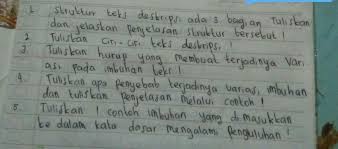 1. Struktur teks deskripsi ada 3 bagian Tuliskan
dan jelaskan penjelasan struktur tersebut!
2. Tuliskan Ciri-Ciri teks deskripsi!
3. Tuliskan huruf yang membuat terjadinya Vari
asi pada imbuhan ber!
4. Tuliskan apa penyebab terjadinya variasi imbuhan
dan tuliskan penjelasan melalui contoh!
5. Tuliskan 1 contoh imbuhan yang dimasukkan
ke dalam kata dasar mengalami penguluhan!